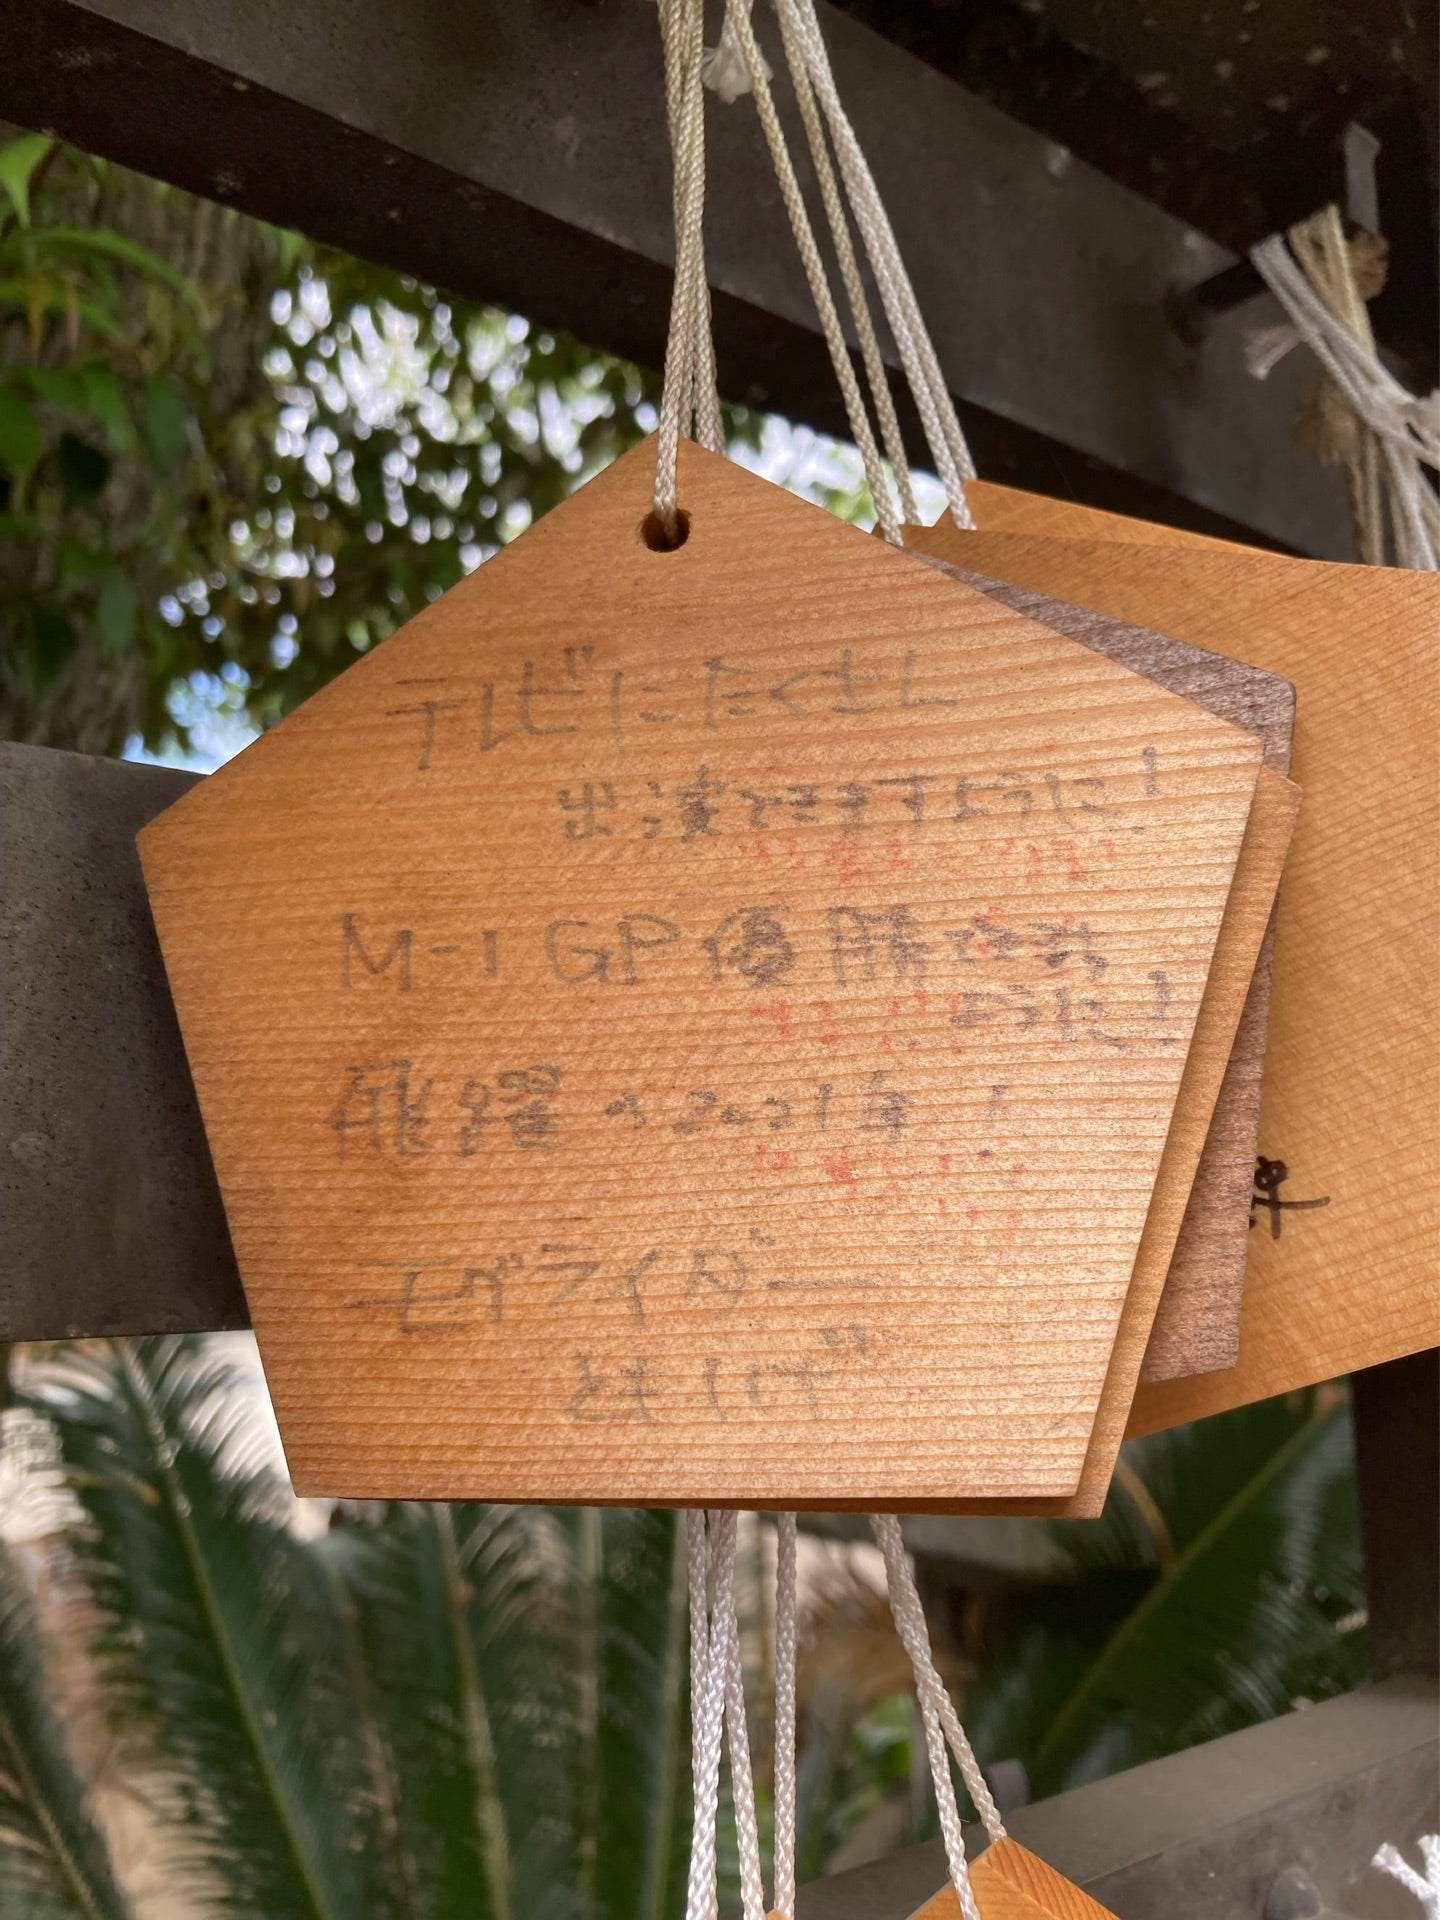 テレビにたくさん
出演できますように!
M-1 GP 優勝できます
ように!
飛躍の2021年!
モグライダー
ともしげ